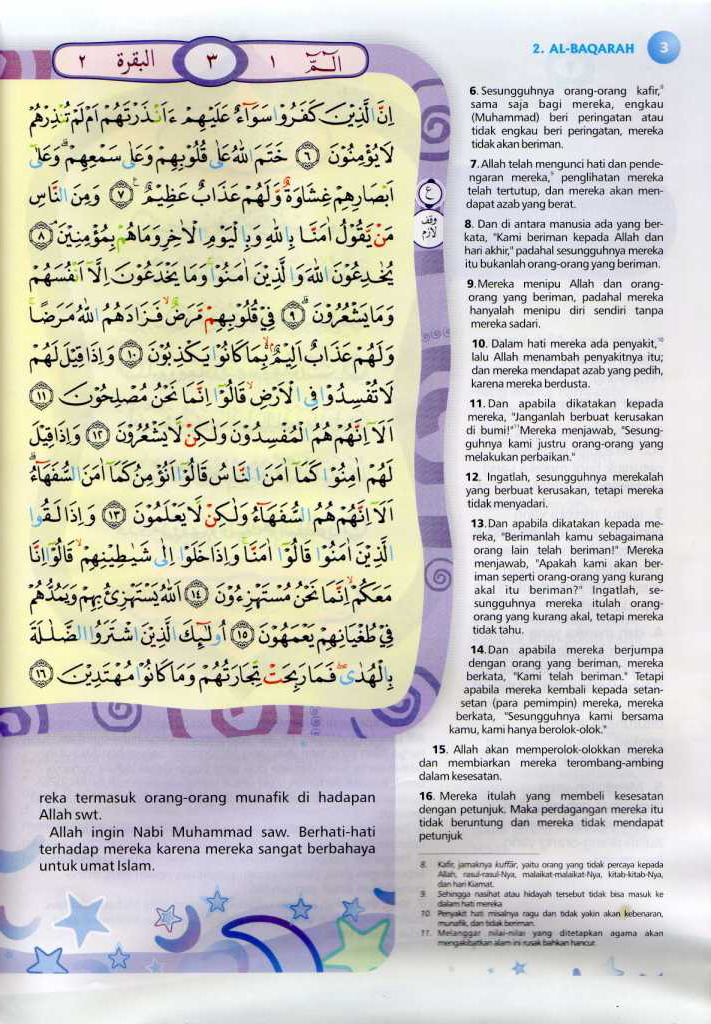 2. AL-BAQARAH 3
الۤمّۤ ١ ٣ البقرة ٢
اِنَّ الَّذِيْنَ كَفَرُوْا سَوَآءٌ عَلَيْهِمْ ءَاَنْذَرْتَهُمْ اَمْ لَمْ تُنْذِرْهُمْ
لَا يُؤْمِنُوْنَ ٦ خَتَمَ اللّٰهُ عَلٰى قُلُوْبِهِمْ وَعَلٰى سَمْعِهِمْ ۗ وَعَلٰٓى
اَبْصَارِهِمْ غِشَاوَةٌ وَّلَهُمْ عَذَابٌ عَظِيْمٌ ٧ وَمِنَ النَّاسِ
مَنْ يَّقُوْلُ اٰمَنَّا بِاللّٰهِ وَبِالْيَوْمِ الْاٰخِرِ وَمَا هُمْ بِمُؤْمِنِيْنَ ٨
يُخٰدِعُوْنَ اللّٰهَ وَالَّذِيْنَ اٰمَنُوْا وَمَا يَخْدَعُوْنَ اِلَّآ اَنْفُسَهُمْ
وَمَا يَشْعُرُوْنَ ٩ فِيْ قُلُوْبِهِمْ مَّرَضٌ فَزَادَهُمُ اللّٰهُ مَرَضًا
وَلَهُمْ عَذَابٌ اَلِيْمٌ بِمَا كَانُوْا يَكْذِبُوْنَ ١٠ وَاِذَا قِيْلَ لَهُمْ
لَا تُفْسِدُوْا فِى الْاَرْضِ قَالُوْٓا اِنَّمَا نَحْنُ مُصْلِحُوْنَ ١١
اَلَآ اِنَّهُمْ هُمُ الْمُفْسِدُوْنَ وَلٰكِنْ لَّا يَشْعُرُوْنَ ١٢ وَاِذَا قِيْلَ
لَهُمْ اٰمِنُوْا كَمَآ اٰمَنَ النَّاسُ قَالُوْٓا اَنُؤْمِنُ كَمَآ اٰمَنَ السُّفَهَاۤءُ ۗ
اَلَآ اِنَّهُمْ هُمُ السُّفَهَاۤءُ وَلٰكِنْ لَّا يَعْلَمُوْنَ ١٣ وَاِذَا لَقُوا
الَّذِيْنَ اٰمَنُوْا قَالُوْٓا اٰمَنَّا وَاِذَا خَلَوْا اِلٰى شَيٰطِيْنِهِمْ قَالُوْٓا اِنَّا
مَعَكُمْ اِنَّمَا نَحْنُ مُسْتَهْزِءُوْنَ ١٤ اَللّٰهُ يَسْتَهْزِئُ بِهِمْ وَيَمُدُّهُمْ
فِيْ طُغْيَانِهِمْ يَعْمَهُوْنَ ١٥ اُولٰۤىِٕكَ الَّذِيْنَ اشْتَرَوُا الضَّلٰلَةَ
بِالْهُدٰى فَمَا رَبِحَتْ تِّجَارَتُهُمْ وَمَا كَانُوْا مُهْتَدِيْنَ ١٦
ع
وقف
لازم
6. Sesungguhnya orang-orang kafir,⁸
sama saja bagi mereka, engkau
(Muhammad) beri peringatan atau
tidak engkau beri peringatan, mereka
tidak akan beriman.
7. Allah telah mengunci hati dan pende-
ngaran mereka,⁹ penglihatan mereka
telah tertutup, dan mereka akan men-
dapat azab yang berat.
8. Dan di antara manusia ada yang ber-
kata, "Kami beriman kepada Allah dan
hari akhir," padahal sesungguhnya mereka
itu bukanlah orang-orang yang beriman.
9. Mereka menipu Allah dan orang-
orang yang beriman, padahal mereka
hanyalah menipu diri sendiri tanpa
mereka sadari.
10. Dalam hati mereka ada penyakit,¹⁰
lalu Allah menambah penyakitnya itu;
dan mereka mendapat azab yang pedih,
karena mereka berdusta.
11. Dan apabila dikatakan kepada
mereka, "Janganlah berbuat kerusakan
di bumi!"¹¹ Mereka menjawab, "Sesung-
guhnya kami justru orang-orang yang
melakukan perbaikan."
12. Ingatlah, sesungguhnya merekalah
yang berbuat kerusakan, tetapi mereka
tidak menyadari.
13. Dan apabila dikatakan kepada me-
reka, "Berimanlah kamu sebagaimana
orang lain telah beriman!" Mereka
menjawab, "Apakah kami akan ber-
iman seperti orang-orang yang kurang
akal itu beriman?" Ingatlah, se-
sungguhnya mereka itulah orang-
orang yang kurang akal, tetapi mereka
tidak tahu.
14. Dan apabila mereka berjumpa
dengan orang yang beriman, mereka
berkata, "Kami telah beriman." Tetapi
apabila mereka kembali kepada setan-
setan (para pemimpin) mereka, mereka
berkata, "Sesungguhnya kami bersama
kamu, kami hanya berolok-olok."
15. Allah akan memperolok-olokkan mereka
dan membiarkan mereka terombang-ambing
dalam kesesatan.
16. Mereka itulah yang membeli kesesatan
dengan petunjuk. Maka perdagangan mereka itu
tidak beruntung dan mereka tidak mendapat
petunjuk
reka termasuk orang-orang munafik di hadapan
Allah swt.
Allah ingin Nabi Muhammad saw. Berhati-hati
terhadap mereka karena mereka sangat berbahaya
untuk umat Islam.
8. Kafir, jamaknya kuffār, yaitu orang yang tidak percaya kepada
Allah, rasul-rasul-Nya, malaikat-malaikat-Nya, kitab-kitab-Nya,
dan hari Kiamat.
9. Sehingga nasihat atau hidayah tersebut tidak bisa masuk ke
dalam hati mereka
10. Penyakit hati misalnya ragu dan tidak yakin akan kebenaran,
munafik, dan tidak beriman.
11. Melanggar nilai-nilai yang ditetapkan agama akan
mengakibatkan alam ini rusak bahkan hancur.